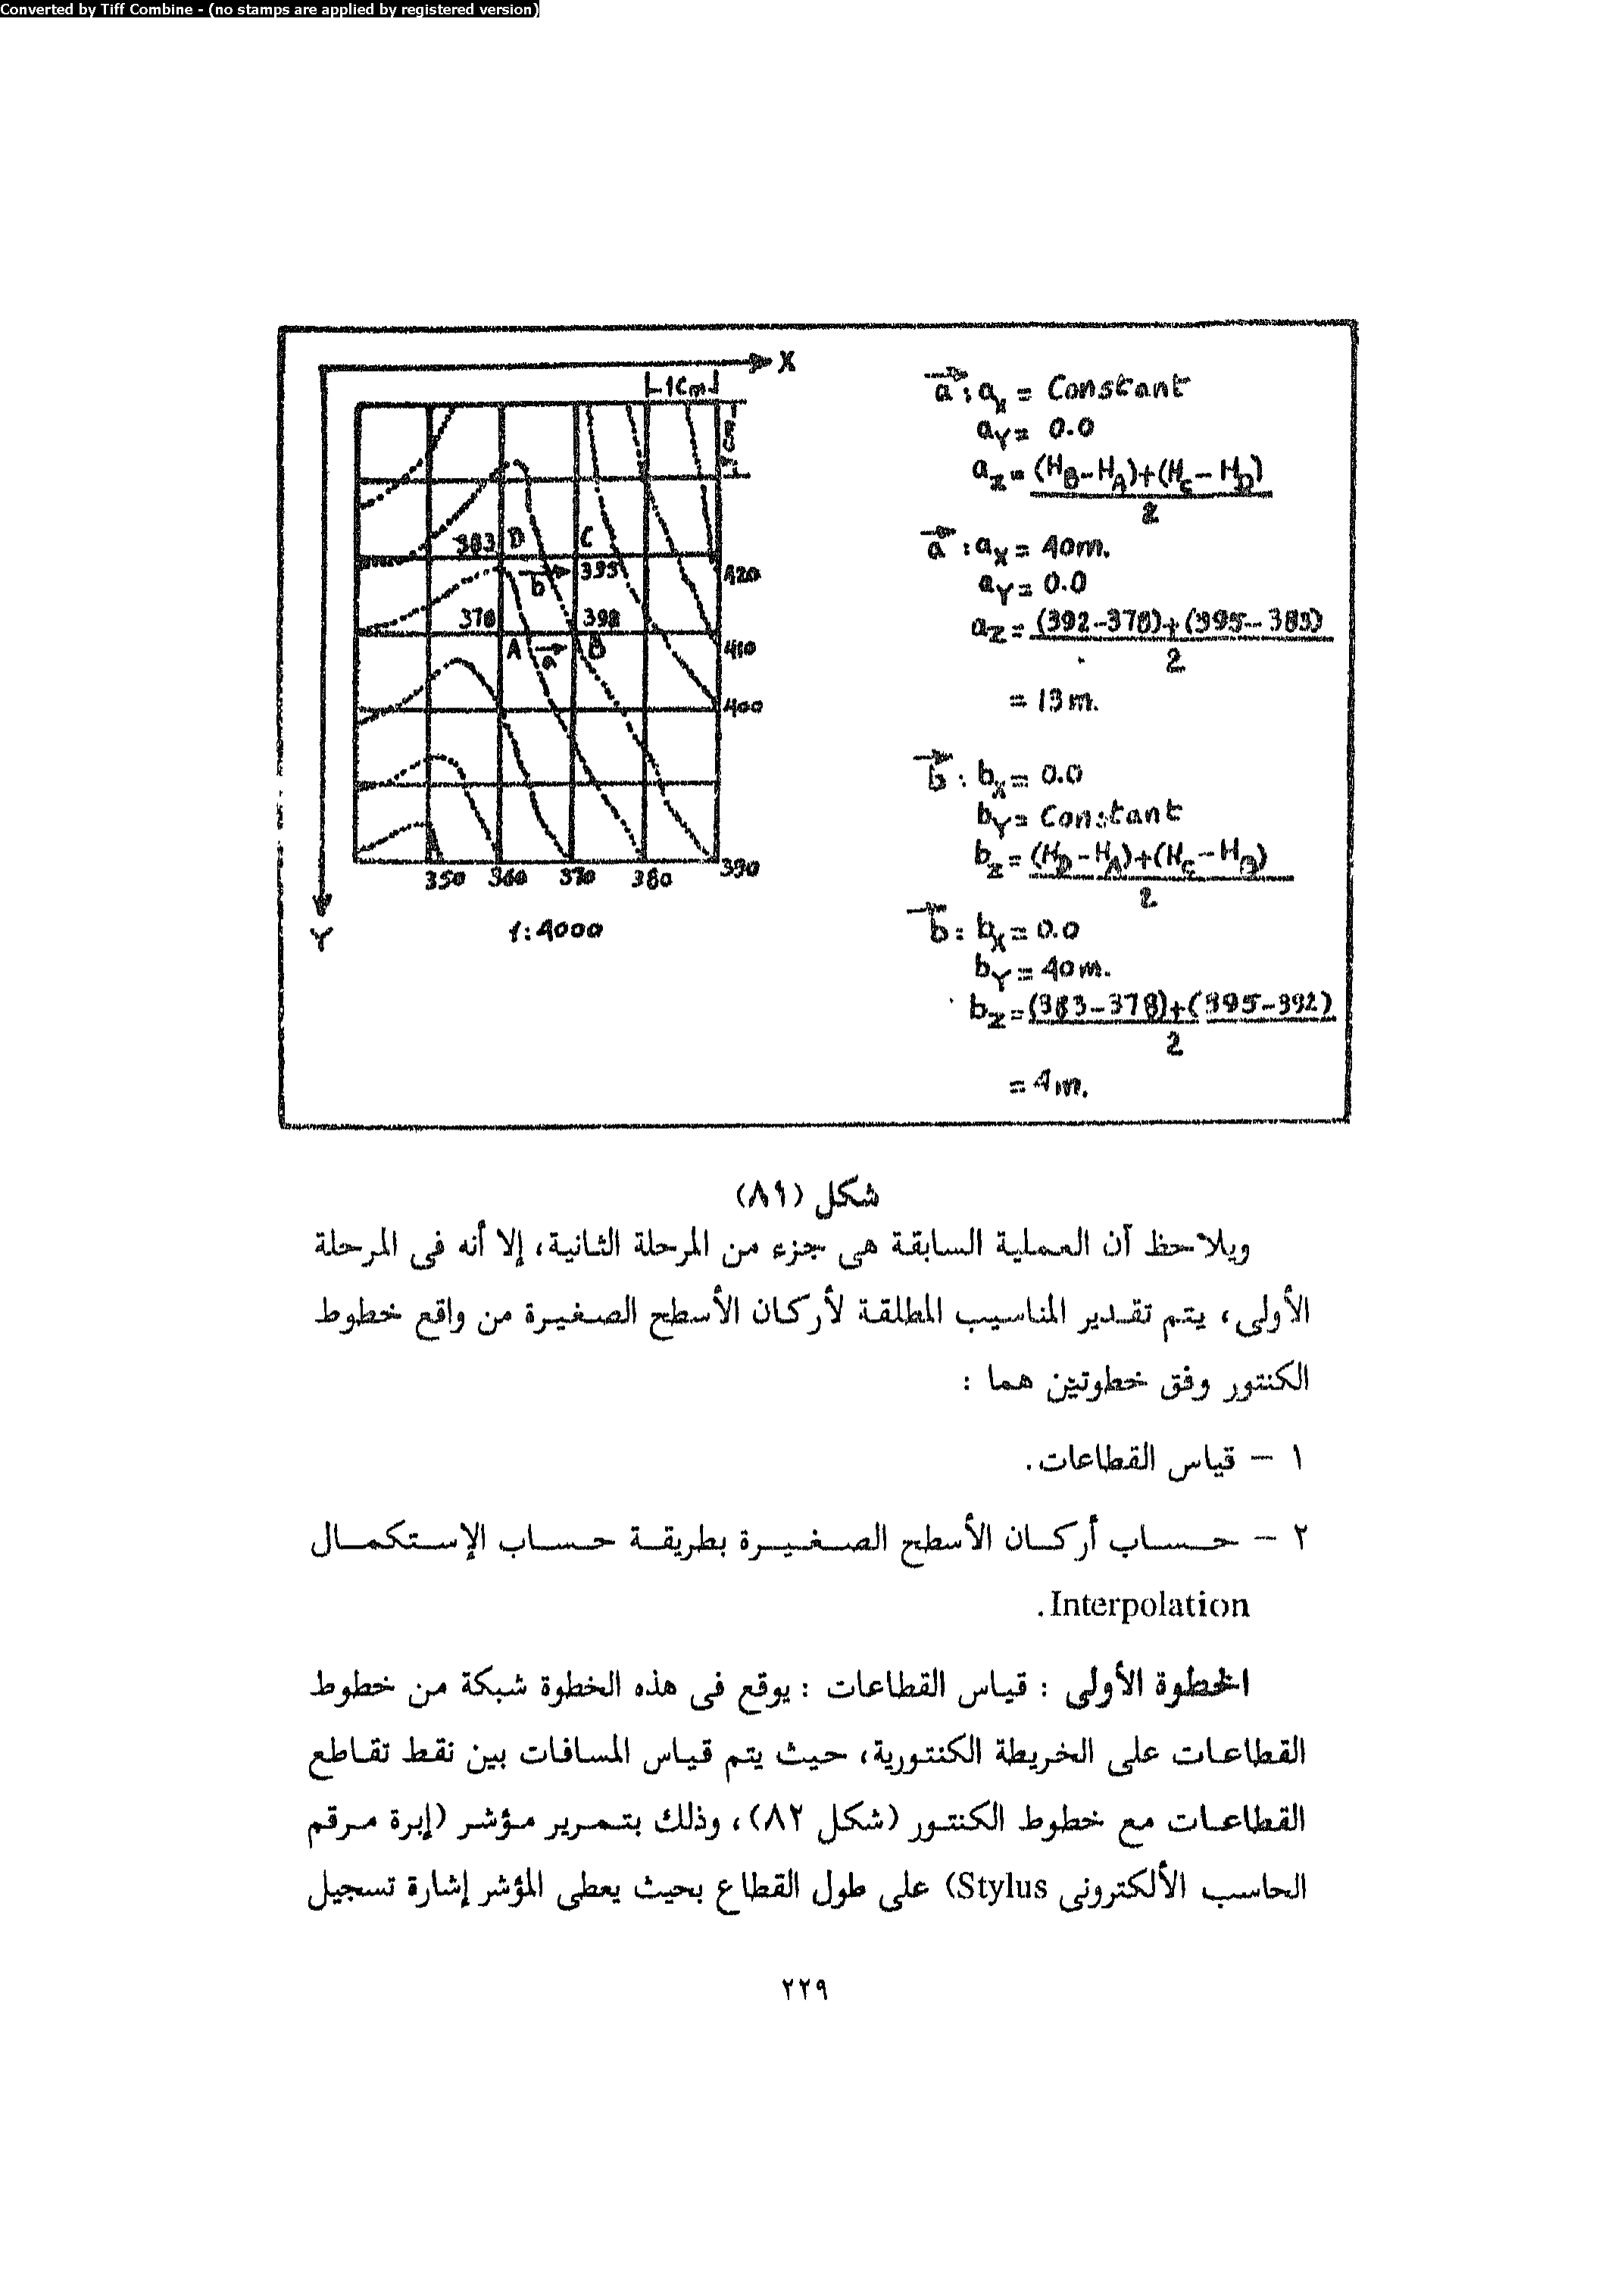 Converted by Tiff Combine - (no stamps are applied by registered version)
X
1Cm
1Cm
383 D C
395
b
420
378 392
A a B
410
400
350 360 370 380 390
Y
1:4000
a : aX = Constant
aY = 0.0
aZ = (HB-HA)+(HC-HD)
2
a : aX = 40m.
aY = 0.0
aZ = (392-378)+(395-383)
2
= 13m.
b : bX = 0.0
bY = Constant
bZ = (HD-HA)+(HC-HB)
2
b : bX = 0.0
bY = 40m.
bZ = (383-378)+(395-392)
2
= 4m.
شكل (٨١)
ويلاحظ أن العملية السابقة هى جزء من المرحلة الثانية، إلا أنه فى المرحلة
الأولى، يتم تقدير المناسيب المطلقة لأركان الأسطح الصغيرة من واقع خطوط
الكنتور وفق خطوتين هما :
١ – قياس القطاعات.
٢ – حساب أركان الأسطح الصغيرة بطريقة حساب الإستكمال
Interpolation.
الخطوة الأولى : قياس القطاعات : يوقع فى هذه الخطوة شبكة من خطوط
القطاعات على الخريطة الكنتورية، حيث يتم قياس المسافات بين نقط تقاطع
القطاعات مع خطوط الكنتور (شكل ٨٢)، وذلك بتمرير مؤشر (إبرة مرقم
الحاسب الألكترونى Stylus) على طول القطاع بحيث يعطى المؤشر إشارة تسجيل
٢٢٩